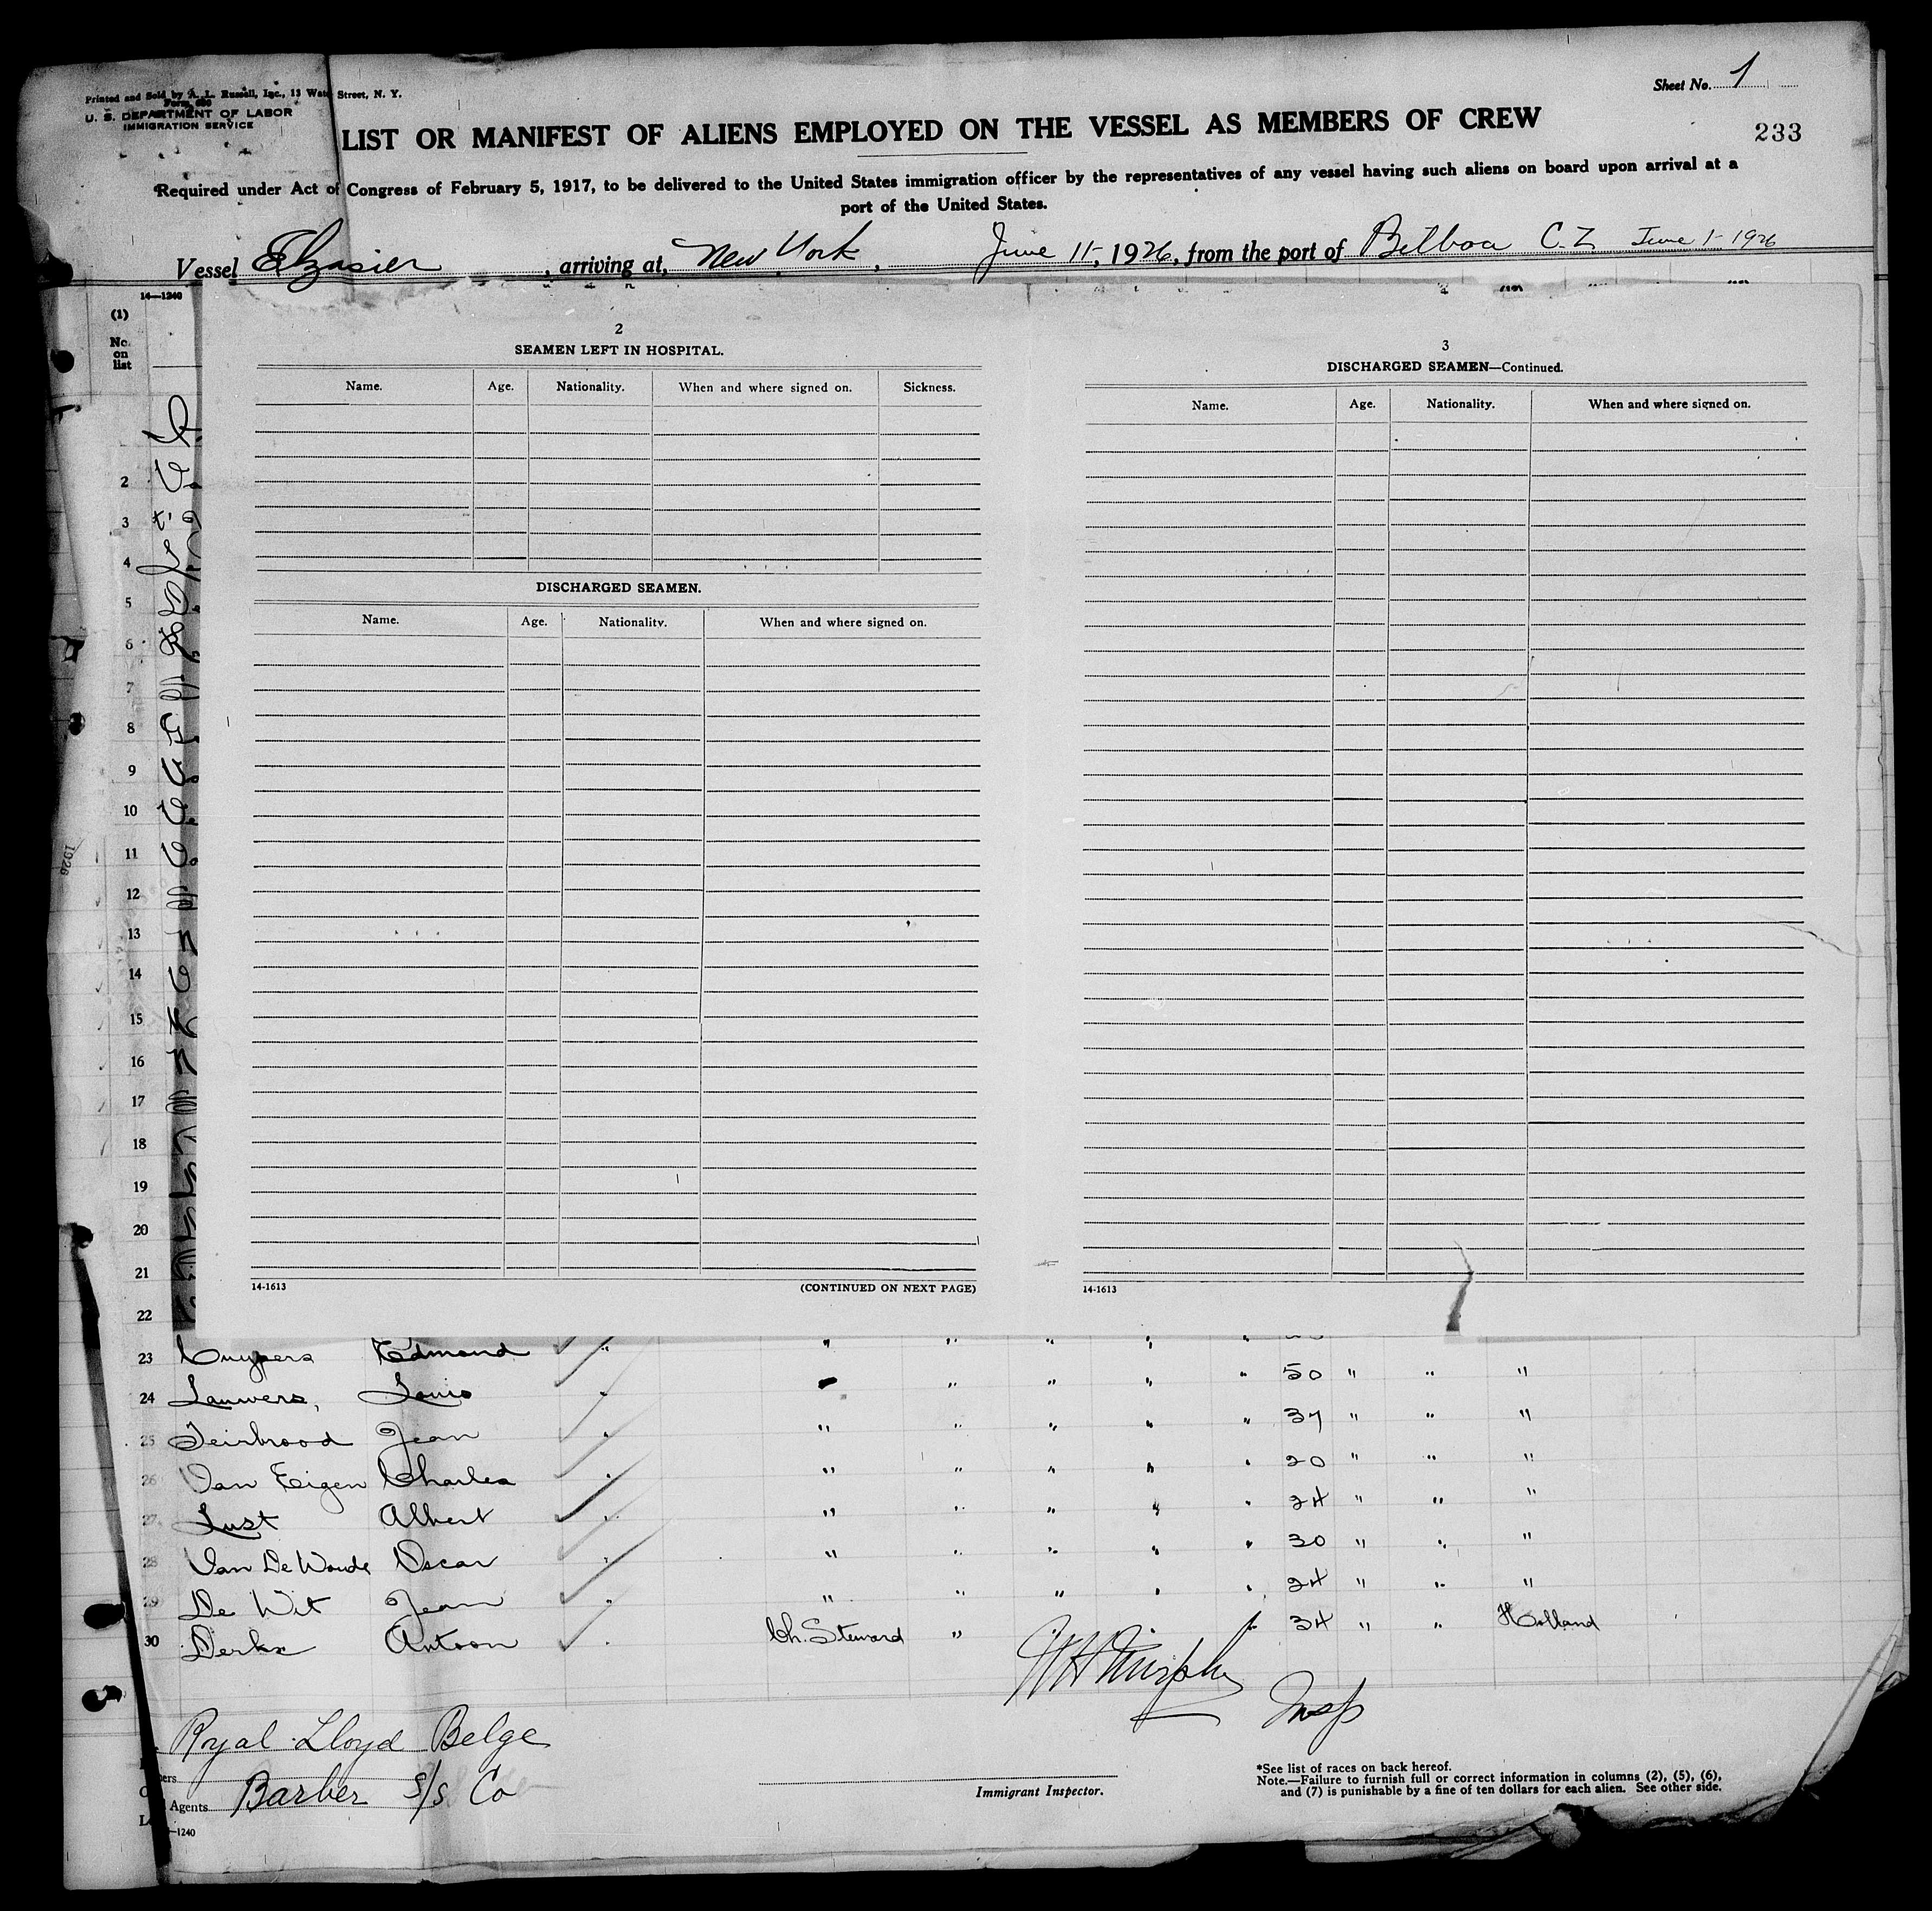 Printed and Sold by A. L. Russell, Inc., 13 Water Street, N. Y.
Form 680
U. S. DEPARTMENT OF LABOR
IMMIGRATION SERVICE
Sheet No. 1
LIST OR MANIFEST OF ALIENS EMPLOYED ON THE VESSEL AS MEMBERS OF CREW
233
Required under Act of Congress of February 5, 1917, to be delivered to the United States immigration officer by the representatives of any vessel having such aliens on board upon arrival at a
port of the United States.
Vessel Elzasier, arriving at, New York, June 11, 1926, from the port of Bilboa C. Z June 1- 1926
14—1240
(1)
No. on list
2
SEAMEN LEFT IN HOSPITAL.
Name. Age. Nationality. When and where signed on. Sickness.
DISCHARGED SEAMEN.
Name. Age. Nationality. When and where signed on.
14-1613 (CONTINUED ON NEXT PAGE)
3
DISCHARGED SEAMEN—Continued.
Name. Age. Nationality. When and where signed on.
14-1613
2
3
4
5
6
7
8
9
10
11
12
13
14
15
16
17
18
19
20
21
22
1926
23 Cuypers Edmond " " " " "
24 Lauwers, Louis " " " " " 50 " " "
25 Teirbrood Jean " " " " " " 37 " " "
26 Van Eigen Charles " " " " " " 20 " " "
27 Lust Albert " " " " " " 24 " " "
28 Van De Woude Oscar " " " " " " 30 " " "
29 De Wit Jean " " " " " " 24 " " "
30 Derkx Antoon " Ch. Steward " " " 34 " " Holland
W H Murphy
Insp
Royal Lloyd Belge
Agents Barber S/S Co
Immigrant Inspector.
*See list of races on back hereof.
Note.—Failure to furnish full or correct information in columns (2), (5), (6),
and (7) is punishable by a fine of ten dollars for each alien. See other side.
—1240